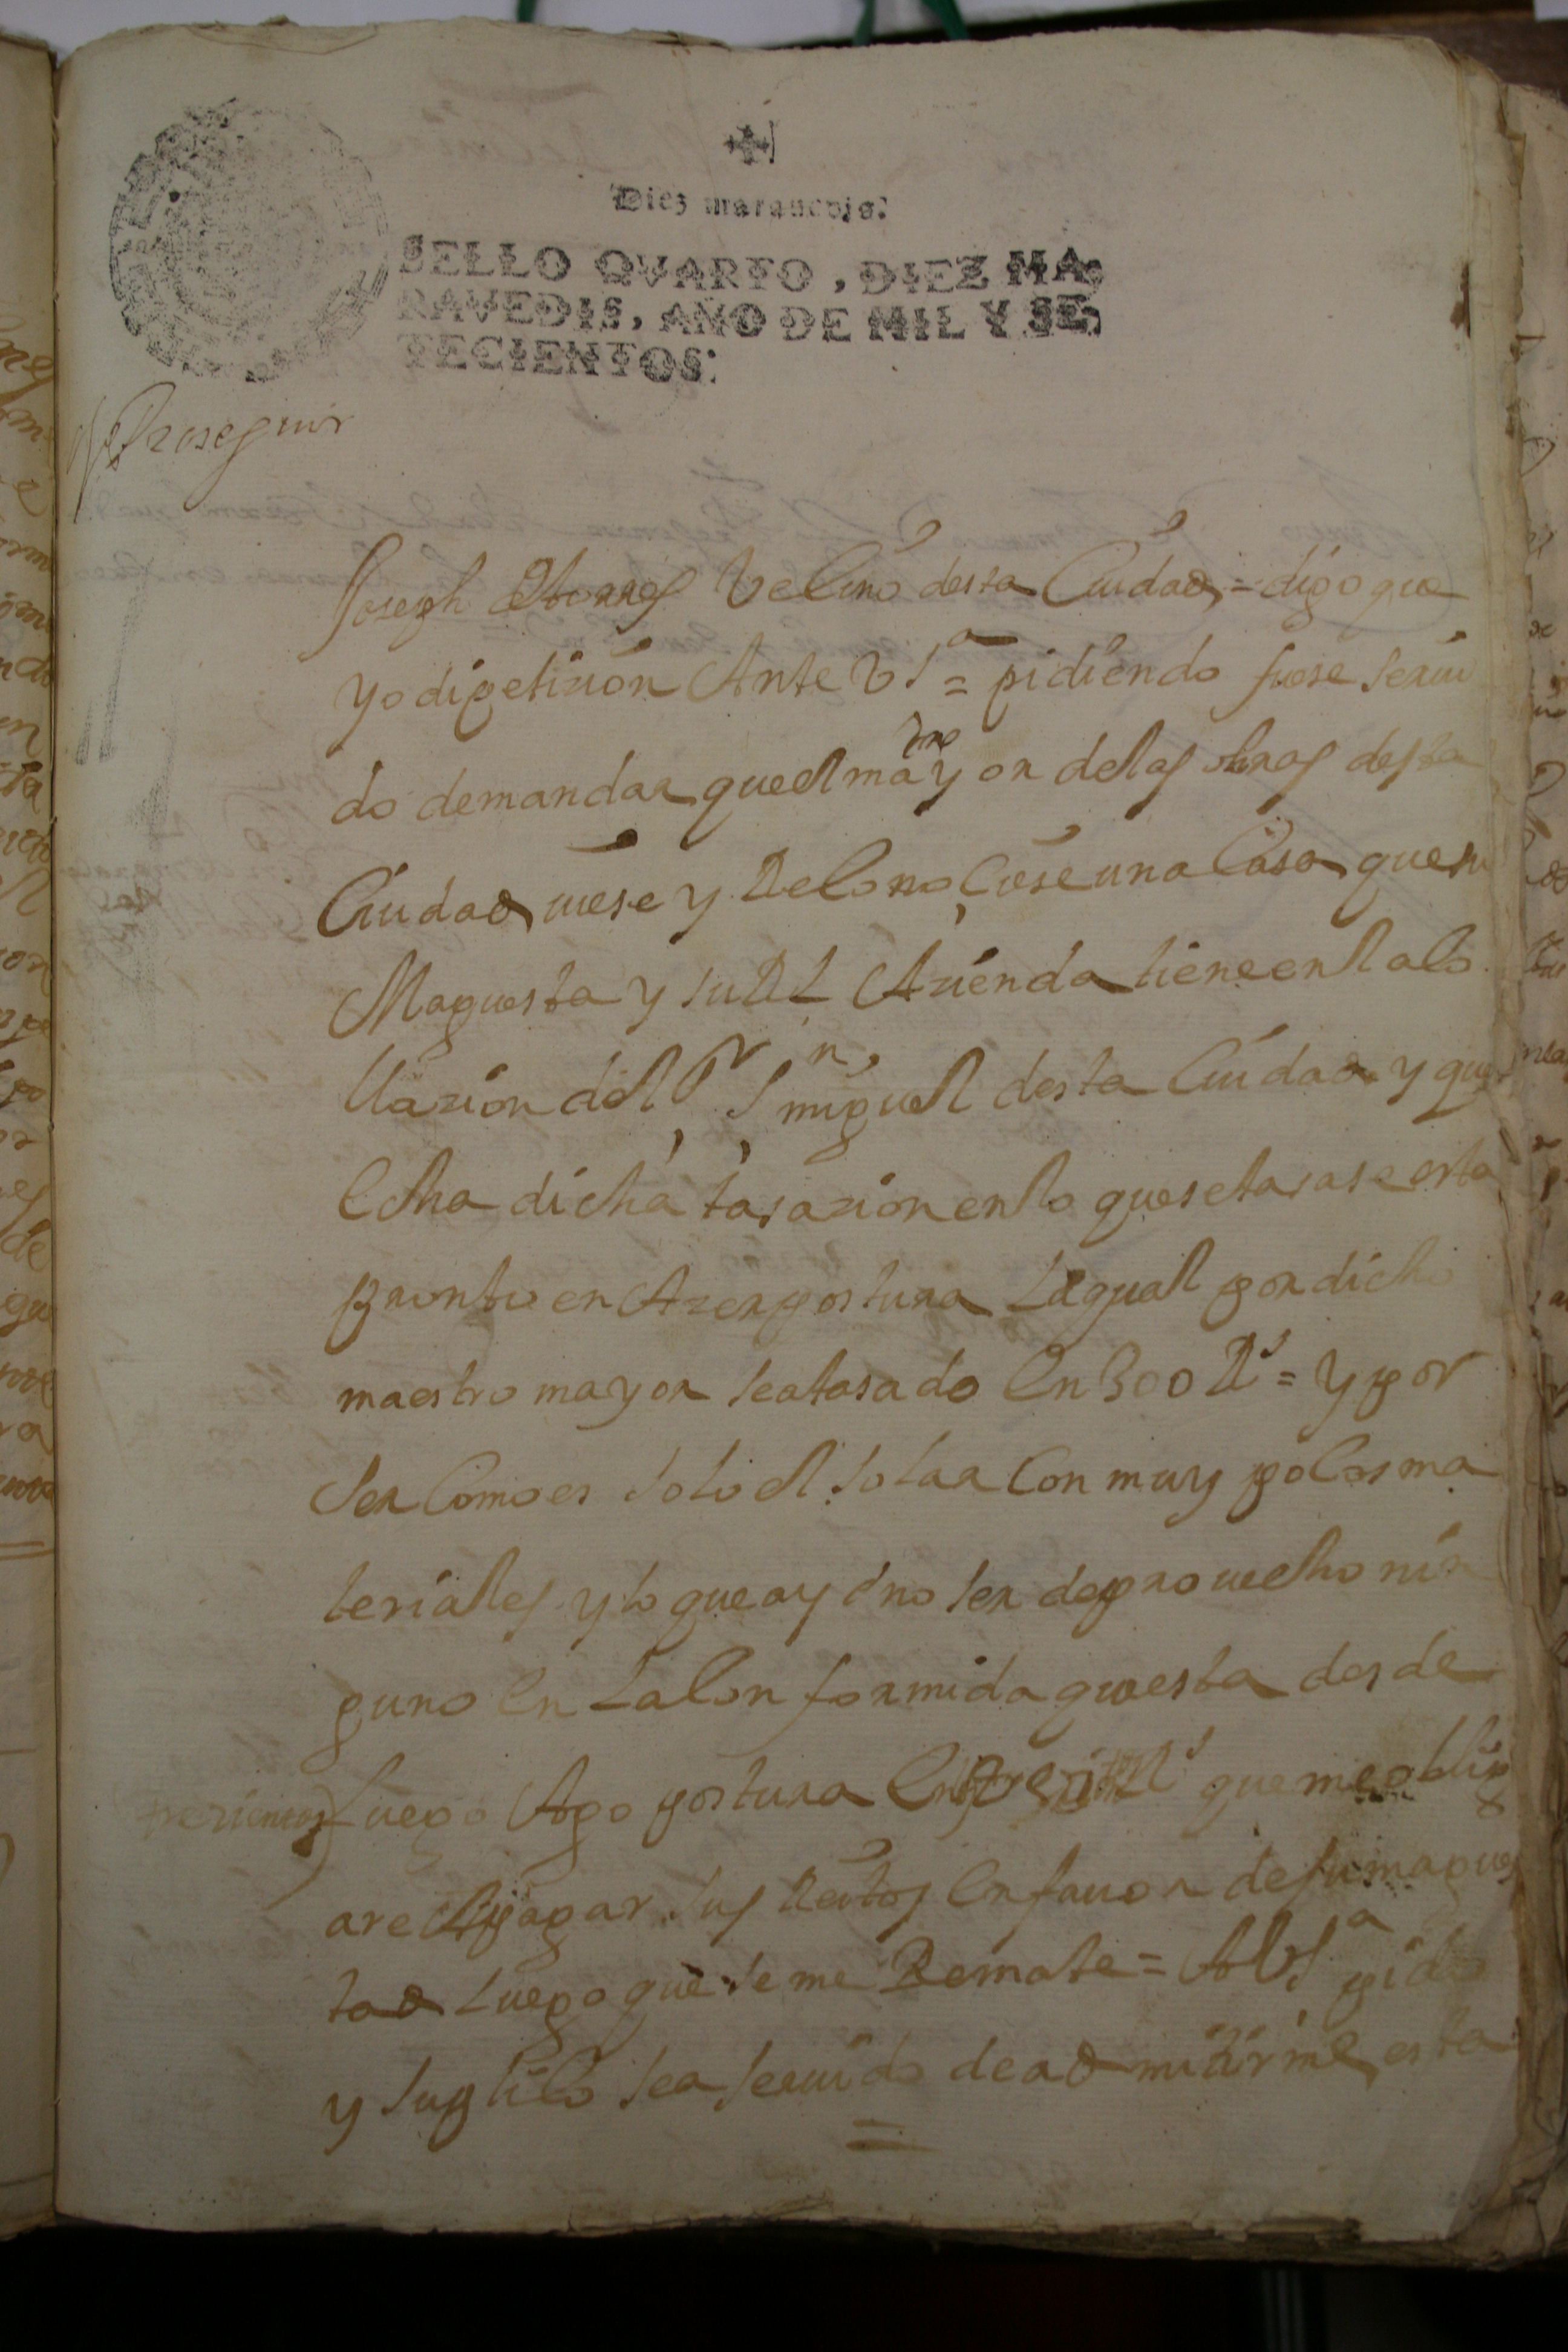 Diez marauedis.
SELLO QVARTO, DIEZ MA-
RAVEDIS, AÑO DE MIL Y SE-
TECIENTOS.
Proseguir
Joseph Veçino desta Ciudad = digo que
yo di petizion Ante VSª = pidiendo fuese serui
do demandar que el mayor de las obras desta
tro
Ciudad uiese y Reconoçiese una Casa que su
Maguesta y su Rl Azienda tiene en la Co
llazion del Sr Sn miguel desta Ciudad y que
echa dicha tasazion en lo que se tasase esta
pronto en Azer postura La qual por dicho
maestro mayor se a tasado en 300 Rs = y por
Ser Como es solo el solar Con muy pocos ma
teriales y lo que ay no ser de prouecho nin
guno en La Conformida que esta desde
trecientos) Luego Ago postura en Rs que me oblig
are A pagar sus Reditos en fauor de su magues
tad Luego que se me Remate = A VSª pido
y suplico sea seruido de admitirme esta
=